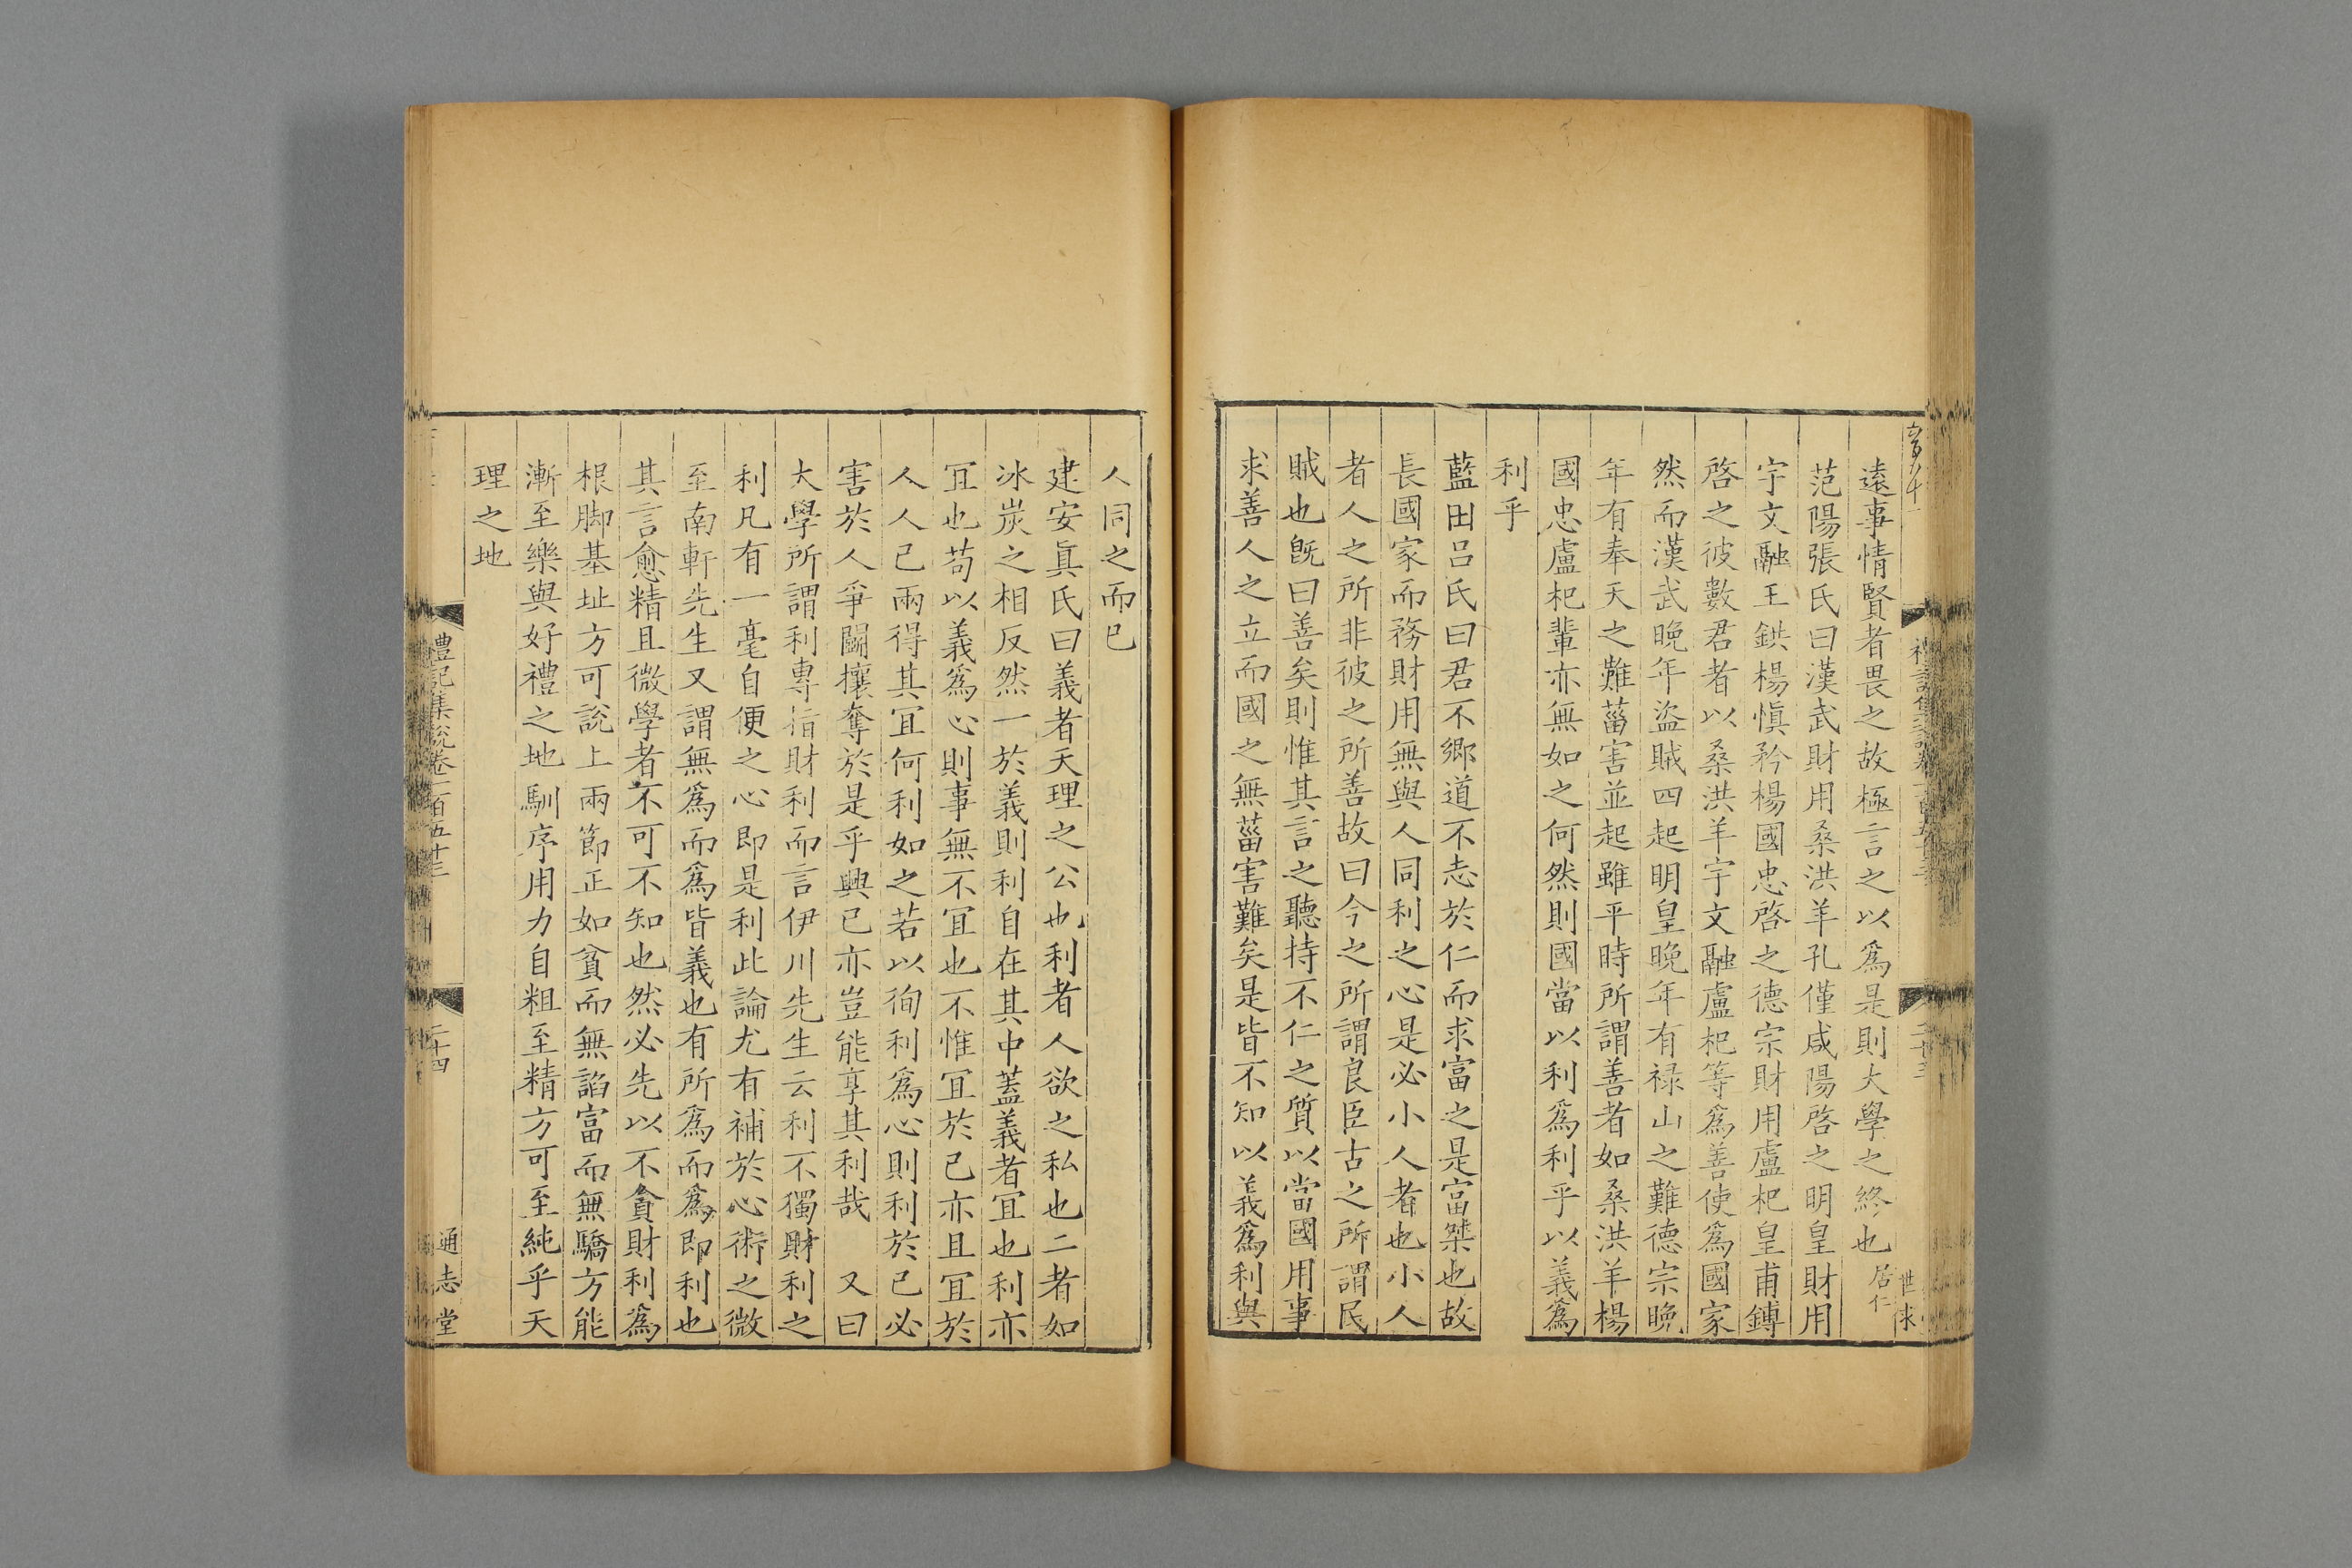 遠事情賢者畏之故極言之以爲是則大學之終也居仁
范陽張氏曰漢武財用桑洪羊孔僅咸陽啓之明皇財用
宇文融王鉷楊愼矜楊國忠啓之德宗財用盧杞皇甫鎛
啓之彼數君者以桑洪羊宇文融盧杞等爲善使爲國家
然而漢武晚年盜賊四起明皇晚年有祿山之難德宗晚
年有奉天之難菑害並起雖平時所謂善者如桑洪羊楊
國忠盧杞輩亦無如之何然則國當以利爲利乎以義爲
利乎
藍田呂氏曰君不鄉道不志於仁而求富之是富桀也故
長國家而務財用無與人同利之心是必小人者也小人
者人之所非彼之所善故曰今之所謂良臣古之所謂民
賊也旣曰善矣則惟其言之聽持不仁之質以當國用事
求善人之立而國之無菑害難矣是皆不知以義爲利與
人同之而已
建安眞氏曰義者天理之公也利者人欲之私也二者如
冰炭之相反然一於義則利自在其中蓋義者宜也利亦
宜也苟以義爲心則事無不宜也不惟宜於己亦且宜於
人人己兩得其宜何利如之若以徇利爲心則利於己必
害於人爭鬭攘奪於是乎興己亦豈能享其利哉 又曰
大學所謂利專指財利而言伊川先生云利不獨財利之
利凡有一毫自便之心即是利此論尤有補於心術之微
至南軒先生又謂無爲而爲皆義也有所爲而爲即利也
其言愈精且微學者不可不知也然必先以不貪財利爲
根脚基址方可說上兩節正如貧而無諂富而無驕方能
漸至樂與好禮之地馴序用力自粗至精方可至純乎天
理之地
禮記集說卷一百五十三
二十四
通志堂